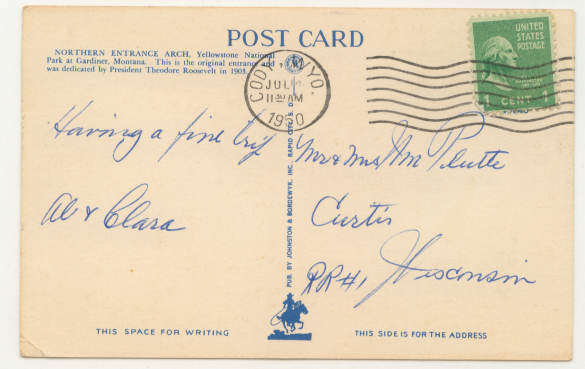 POST CARD
NORTHERN ENTRANCE ARCH, Yellowstone National
Park at Gardiner, Montana. This is the original entrance and
was dedicated by President Theodore Roosevelt in 1903.
CODY, WYO.
JUL
11 AM
1950
UNITED
STATES
POSTAGE
1 CENT 1
Having a fine trip
Al & Clara
Mr & Mrs Wm Plutte
Curtis
RR#1 Wisconsin
PUB. BY JOHNSTON & BORDEWYK, INC., RAPID CITY, S. D.
THIS SPACE FOR WRITING
THIS SIDE IS FOR THE ADDRESS